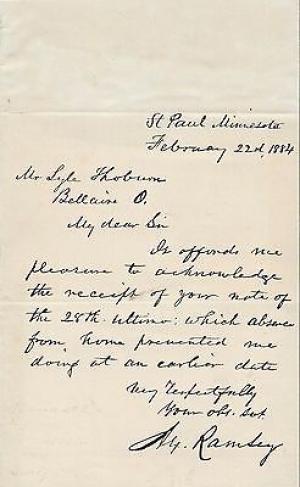 St Paul Minnesota
February 22d, 1884
Mr Lyle Thoburn
Bellaire O.
My dear Sir
It affords me
pleasure to acknowledge
the receipt of your note of
the 28th ultimo: which absence
from home prevented me
doing at an earlier date
Very respectfully
Your obt. svt.
Alex. Ramsey